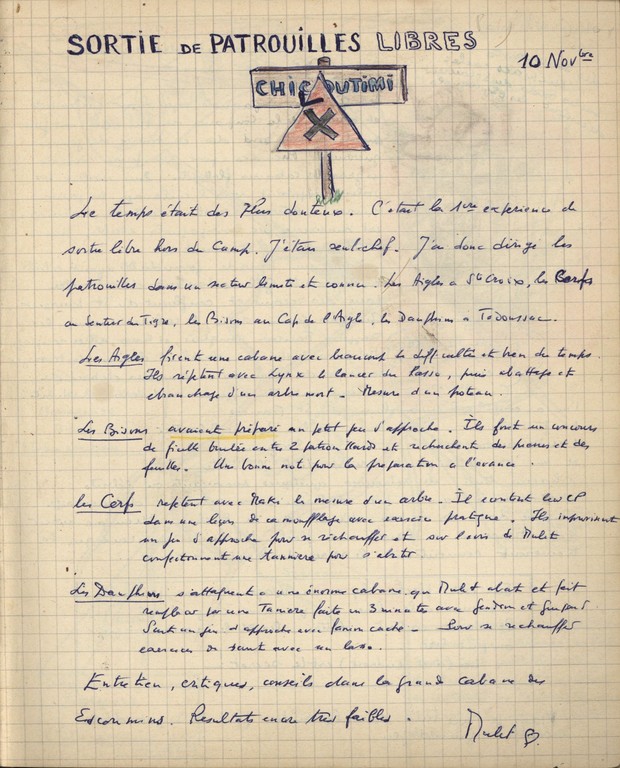 SORTIE DE PATROUILLES LIBRES
10 Novbre
CHICOUTIMI
Le temps était des plus douteux. C'était la 1ere experience de
sortie libre hors du Camp. J'étais seul chef. J'ai donc dirigé les
patrouilles dans un secteur limité et connu. Les Aigles a Ste Croix, les Cerfs
au Sentier du Tigre, les Bisons au Cap de l'Aigle, les Dauphins a Tadoussac.
Les Aigles firent une cabane avec beaucoup de difficultés et bien du temps.
Ils répètent avec Lynx le lancer du Lasso, puis abattage et
ebranchage d'un arbre mort. Mesure d'un poteau.
Les Bisons avaient préparé un petit jeu d'approche. Ils font un concours
de ficelle brulée entre 2 patrouillards et recherchent des mousses et des
feuilles. Une bonne note pour la préparation a l'avance.
Les Cerfs répètent avec Maki la mesure d'un arbre. Ils content leur CP
dans une leçon de camouflage avec exercice pratique. Ils improvisent
un jeu d'approche pour se réchauffer et sur l'avis de Mulet
confectionnent une tannière pour s'abriter.
Les Dauphins s'attaquent a une énorme cabane que Mulet abat et fait
remplacer par une Tanière faite en 3 minutes avec
Suit un jeu d'approche avec fanion caché. Pour se rechauffer
exercices de saut avec un lasso.
Entretien, critiques, conseils dans la grande cabane des
Escoumins. Resultats encore très faibles.
Mulet